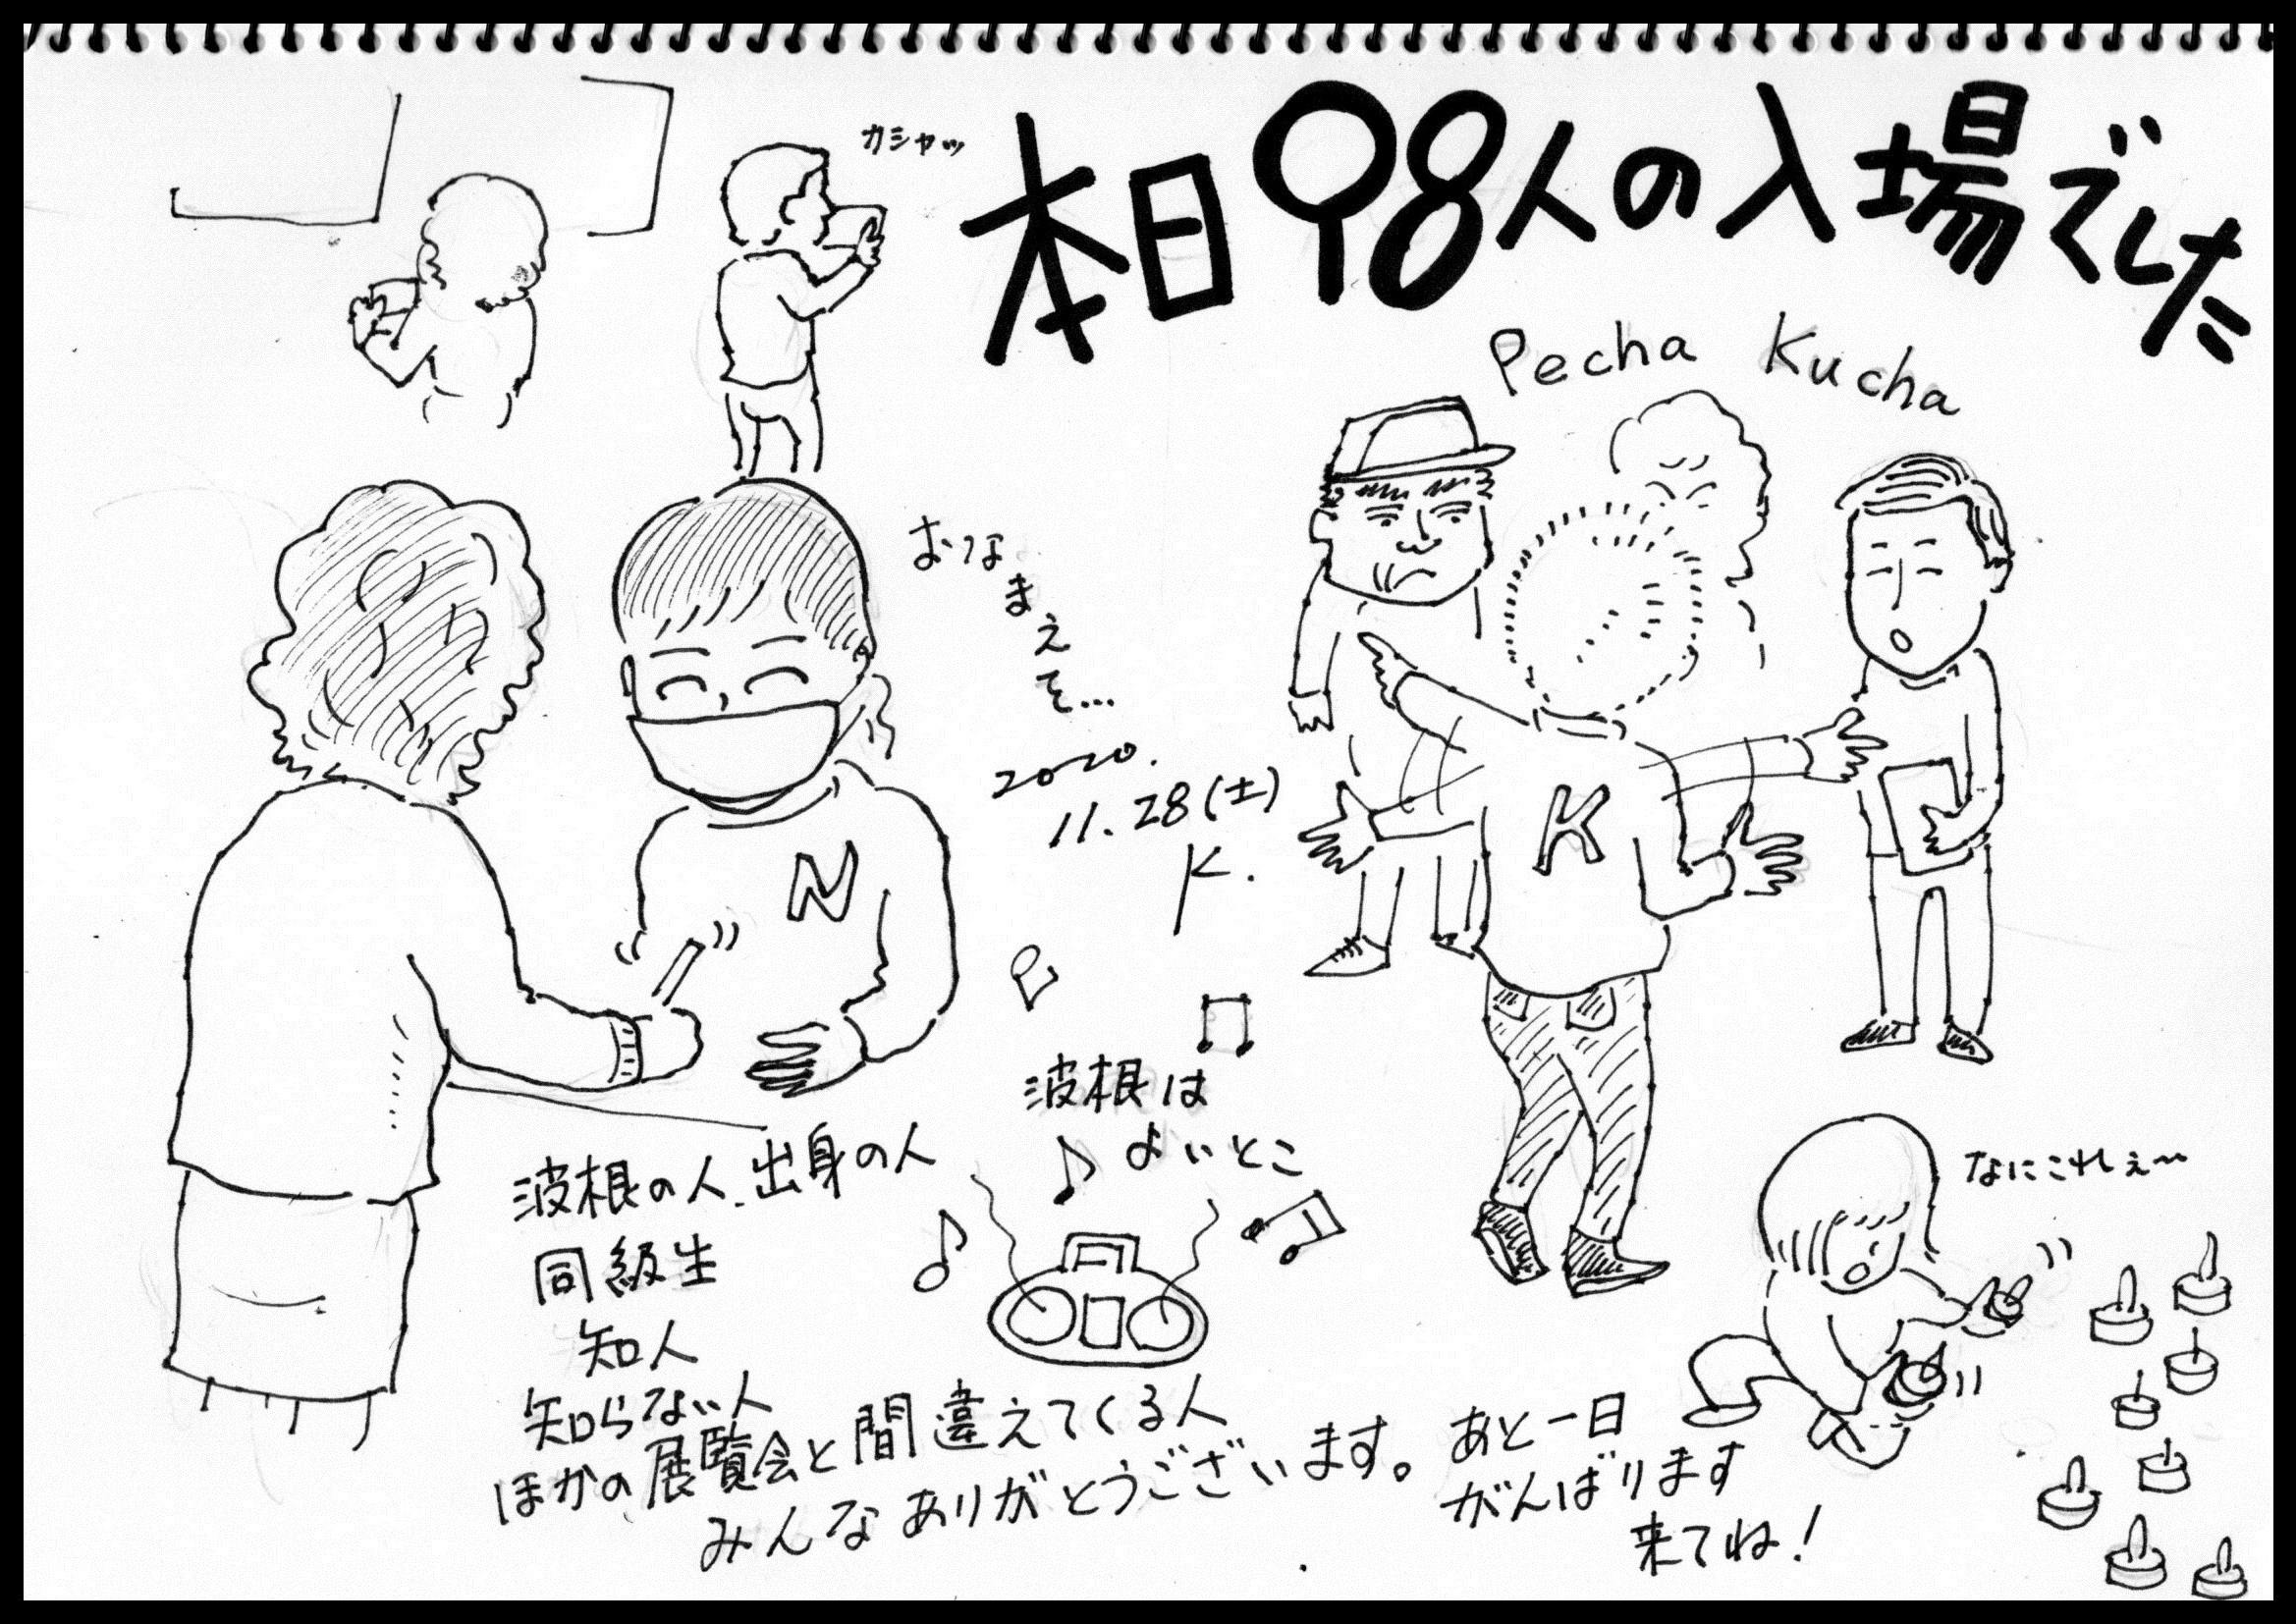 本日98人の入場でした
カシャッ
Pecha Kucha
おなまえを…
2020.
11.28(土)
K.
N
K
波根は
よいとこ
なにこれぇ〜
波根の人、出身の人
同級生
知人
知らない人
ほかの展覧会と間違えてくる人
みんなありがとうございます。
あと一日
がんばります
来てね!